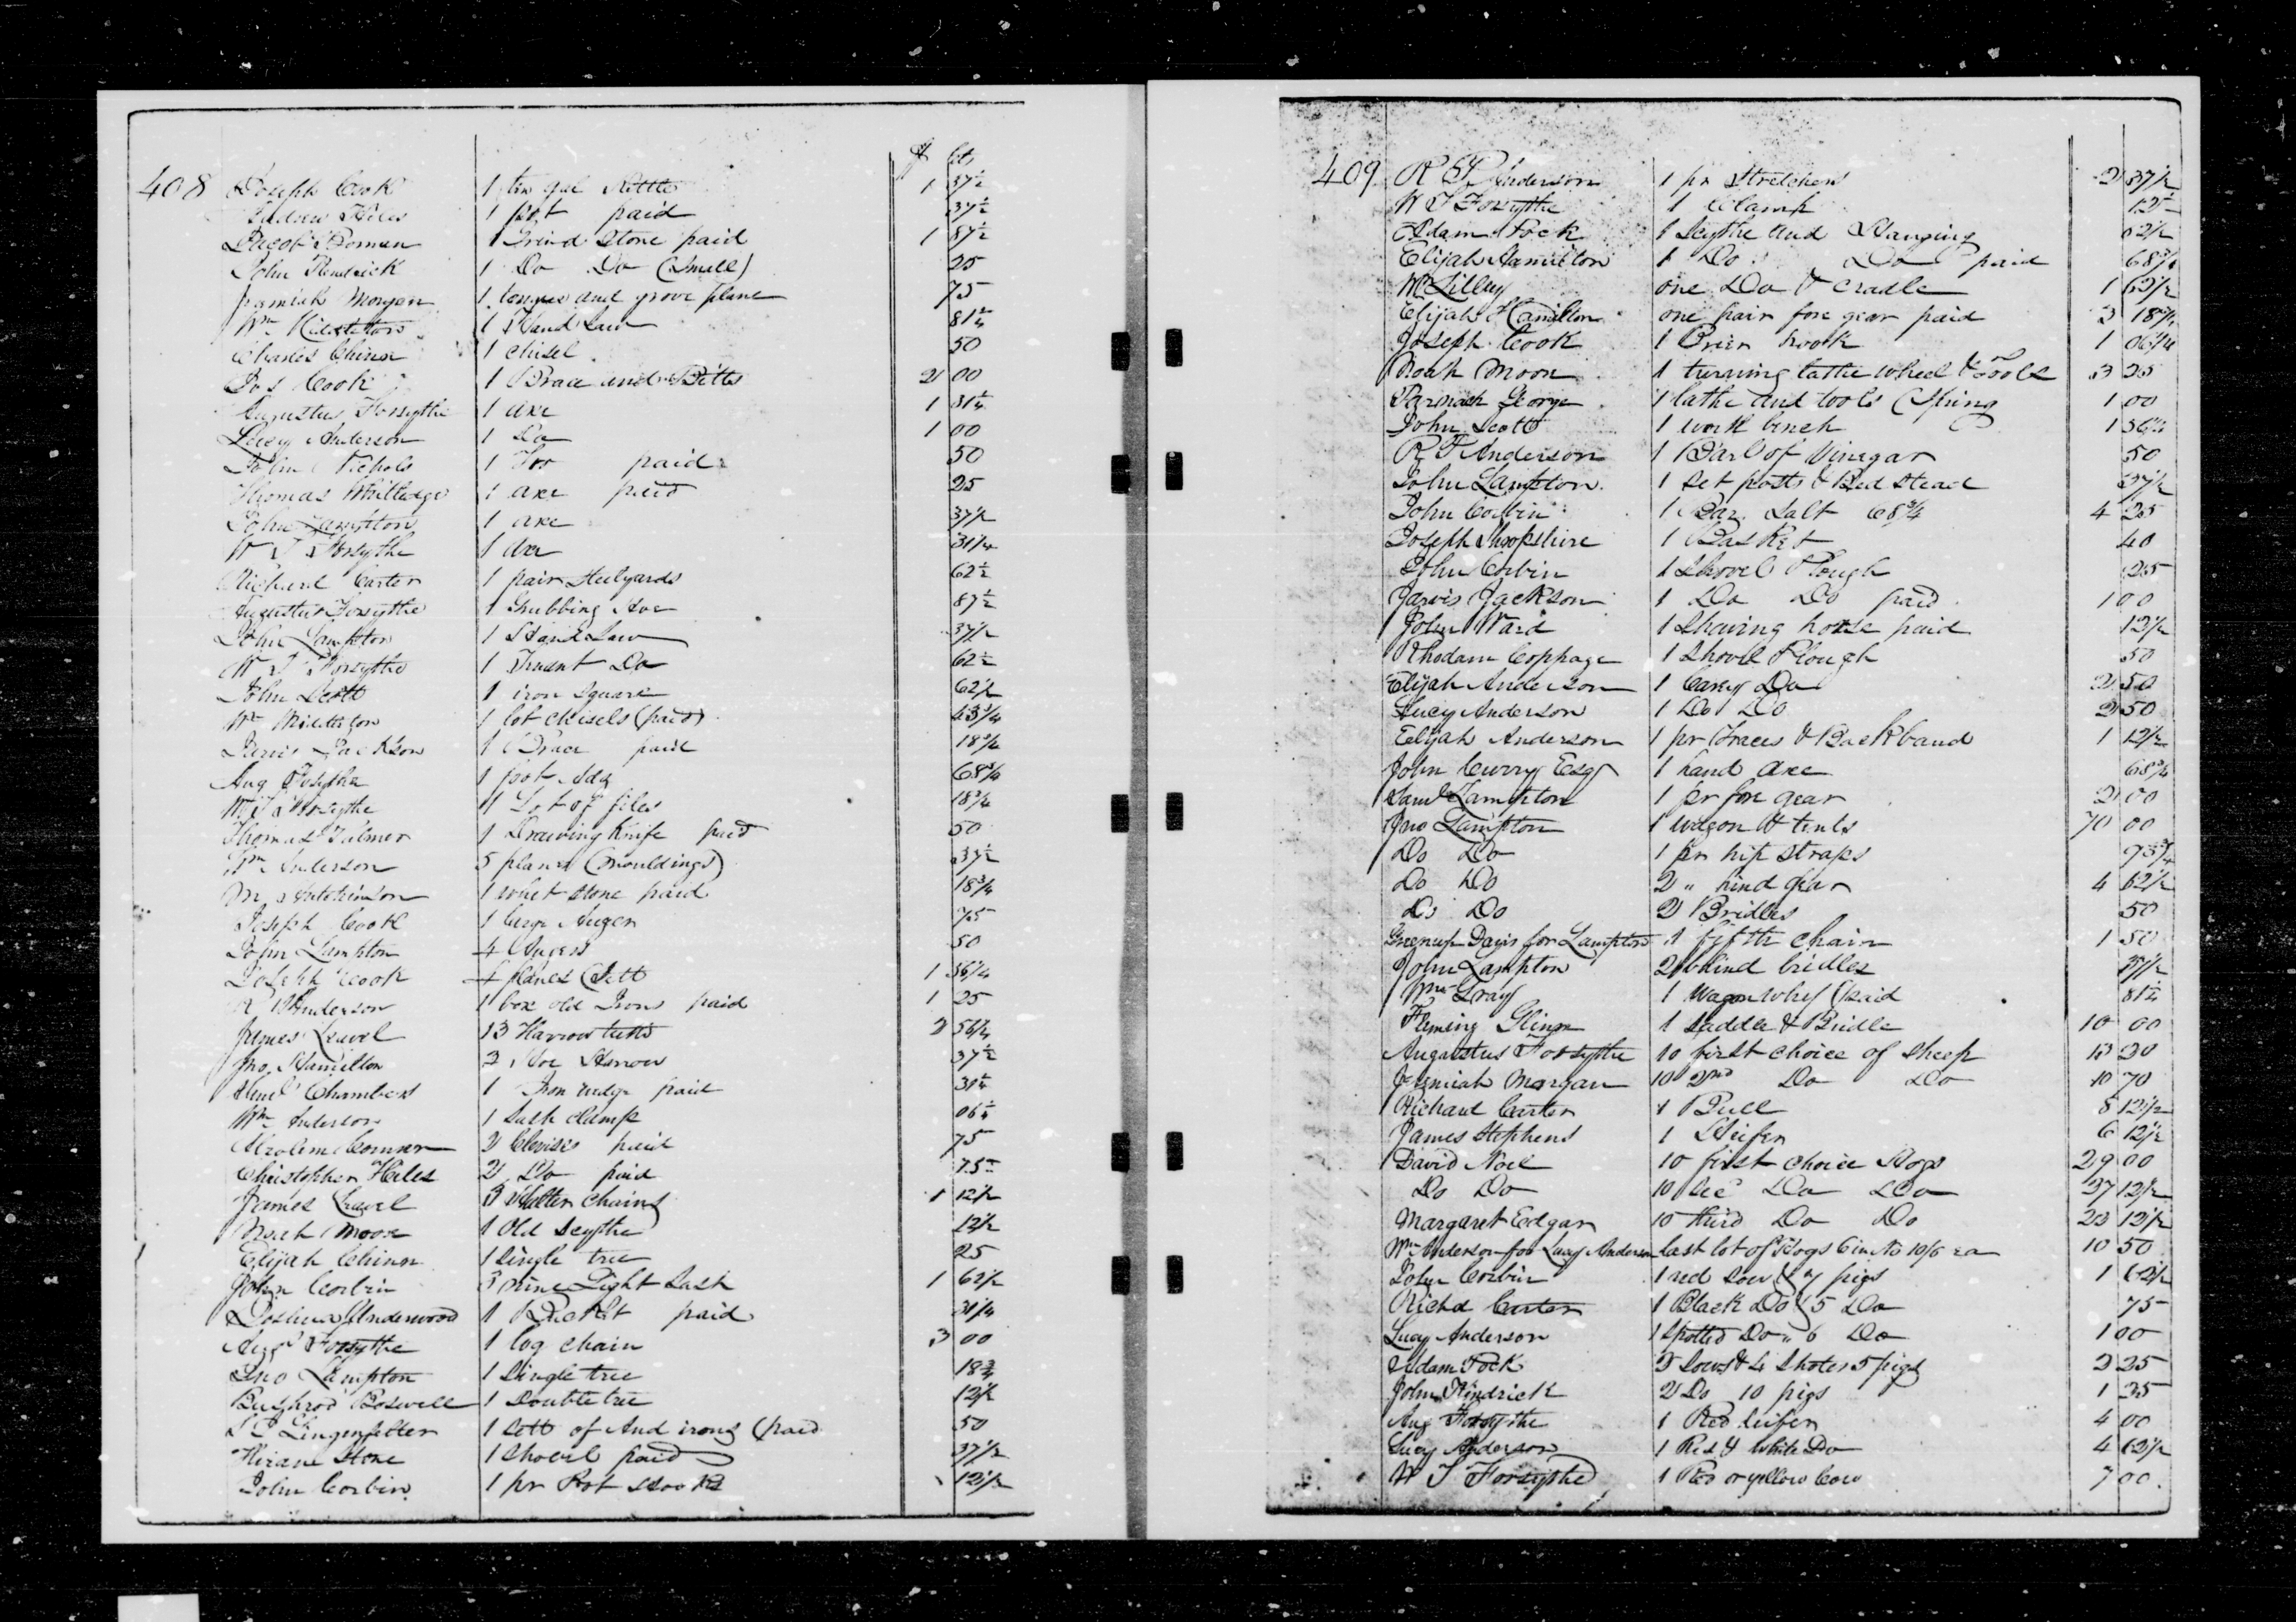 $ cts
408 Joseph Cook 1 ten gal Kettle 1 37½
Andrew Hiles 1 pot paid 37½
Jacob 1 Grind Stone paid 1 87½
John Kendrick 1 Do Do (Small) 25
Jeremiah Morgan 1 tongue and grove plane 75
Wm Middleton 1 Hand Saw 81¼
Charles Chinn 1 chisel 50
Jos Cook 1 Brace and Bitts 2 00
Augustus Forsythe 1 axe 1 31¼
Lucy Anderson 1 Do 1 00
John Nichols 1 paid 50
Thomas Whitledge 1 axe paid 25
John Lampton 1 axe 37½
W T Forsythe 1 axe 31¼
Richard Carter 1 pair Stilyards 62½
Augustus Forsythe 1 Grubbing Hoe 87½
John Lampton 1 Hand Saw 37½
W T Forsythe 1 Do 62½
John Scott 1 iron Square 62½
Wm Middleton 1 lot chisels (paid) 43¾
Jarvis Jackson 1 Brace paid 18¾
Aug Forsythe 1 foot Adz 68¾
W T Forsythe 1 Lot of files 18¾
Thomas 1 Drawing Knife paid 50
Wm Anderson 5 planes (mouldings) 37½
M Hutchinson 1 whet stone paid 18¾
Joseph Cook 1 large Auger 75
John Lampton 4 Augers 50
Joseph Cook 4 planes (Sett 1 56¼
R Anderson 1 box old Irons paid 1 25
James Leavel 13 Harrow teeth 2 56¼
Jno Hamilton 2 Hoe Harrow 37½
Chambers 1 Iron wedge paid 31¼
Wm Anderson 1 Sash clamp 06¼
Conner 2 Clevises paid 75
Christopher Hiles 2 Do paid 75
James Leavel 3 Halter chains 1 12½
Noah Moon 1 Old Scythe 12½
Elijah Chinn 1 Single tree 25
John Corbin 3 nine Light Sash 1 62½
Joshua Underwood 1 Bucket paid 31¼
Augs Forsythe 1 log chain 3 00
Jno Lampton 1 Single tree 18¾
Bushrod Boswell 1 Double tree 12½
Lingenfelter 1 Sett of And irons (paid 50
Hiram Stone 1 Shovel paid 37½
John Corbin 1 pr Pot Hooks 12½
409 R T Anderson 1 pr Stretchers 2 37½
W T Forsythe 1 Clamp 12½
Adam Fock 1 Scythe and Hanging 62½
Elijah Hamilton 1 Do Do paid 68¾
W Lilley one Do & cradle 1 62½
Elijah Hamilton one pair fore gear paid 3 18¾
Joseph Cook 1 Brier hook 1 06¼
Noah Moon 1 turning lathe wheel & Tools 3 25
Parmach George 1 lathe and tools (Spring 1 00
John Scott 1 work bench 1 56¼
R T Anderson 1 Barl of Vinegar 50
John Lampton 1 Set posts & Bed stead 37½
John Corbin 1 Bar. Salt 68¾ 4 25
Joseph Shropshire 1 Basket 40
John Corbin 1 Shovel Plough 25
Jarvis Jackson 1 Do Do paid 1 00
John Ward 1 Shaving horse paid 12½
Rhodam Coppage 1 Shovel Plough 50
Elijah Anderson 1 Carey Do 2 50
Lucy Anderson 1 Do Do 2 50
Elijah Anderson 1 pr Traces & Backband 1 12½
John Curry Esqr 1 hand axe 68¾
Saml Lampton 1 pr fore gear 2 00
Jno Lampton 1 wagon & tents 70 00
Do Do 1 pr hip straps 93¾
Do Do 2 " hind gear 4 62½
Do Do 2 Bridles 50
Greenup Davis for Lampton 1 fifth chain 1 50
John Lampton 2 blind bridles 37½
Wm Gray 1 Wagon Whip (paid 81¼
Fleming Glinn 1 Saddle & Bridle 10 00
Augustus Forsythe 10 first choice of sheep 13 20
Jeremiah Morgan 10 2nd Do Do 10 70
Richard Carter 1 Bull 8 12½
James Stephens 1 Heifer 6 12½
David Noel 10 first choice Hogs 29 00
Do Do 10 Sec Do Do 27 12½
Margaret Edgar 10 third Do Do 23 12½
Wm Anderson for Lucy Anderson last lot of Hogs 6 in No 10/6 ea 10 50
John Corbin 1 red Sow & 7 pigs 1 62½
Richd Carter 1 Black Do & 5 Do 75
Lucy Anderson 1 Spotted Do " 6 Do 1 00
Adam Fock 2 Sows & 4 Shotes 5 pigs 2 25
John Kindrick 2 Do 10 pigs 1 25
Aug Forsythe 1 Red heifer 4 00
Lucy Anderson 1 Red & White Do 4 62½
W T Forsythe 1 Red or yellow Cow 7 00